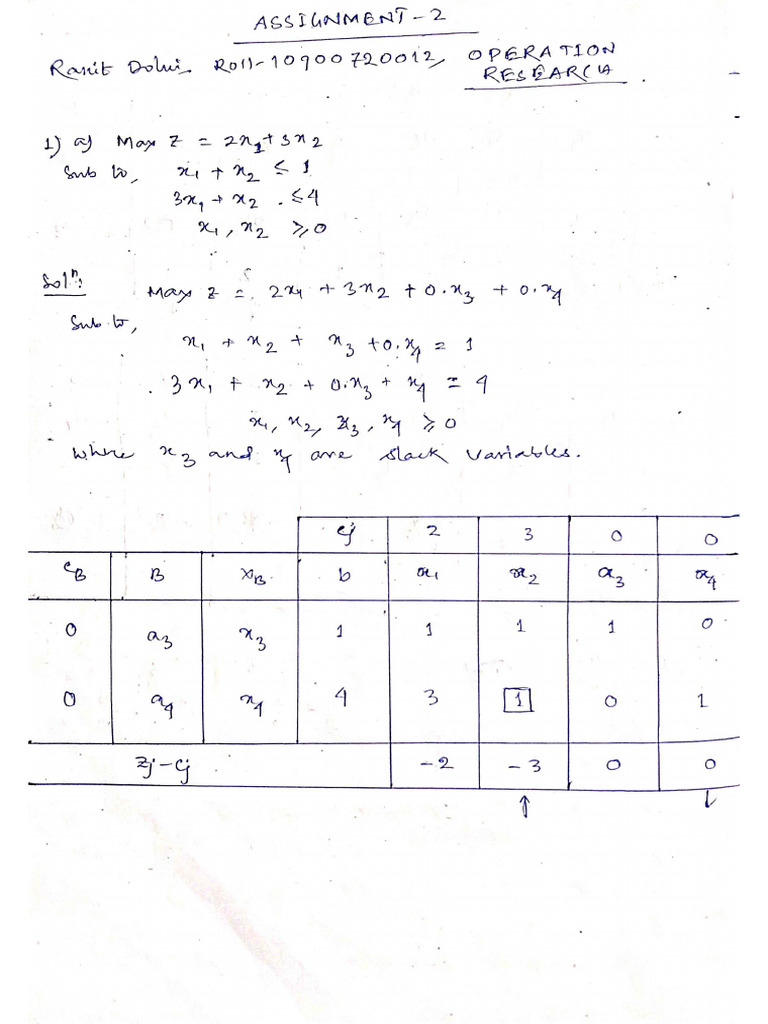 ASSIGNMENT-2
Ranit Dolui Roll-10900720012, OPERATION
RESEARCH
1) a) Max Z = 2x₁ + 3x₂
Sub to, x₁ + x₂ ≤ 1
3x₁ + x₂ ≤ 4
x₁, x₂ ≥ 0
Solⁿ: Max Z = 2x₁ + 3x₂ + 0.x₃ + 0.x₄
Sub to,
x₁ + x₂ + x₃ + 0.x₄ = 1
3x₁ + x₂ + 0.x₃ + x₄ = 4
x₁, x₂, x₃, x₄ ≥ 0
where x₃ and x₄ are slack variables.
Cj 2 3 0 0
CB B XB b x₁ x₂ x₃ x₄
0 a₃ x₃ 1 1 1 1 0
0 a₄ x₄ 4 3 1 0 1
Zj-Cj -2 -3 0 0
↑ ↓